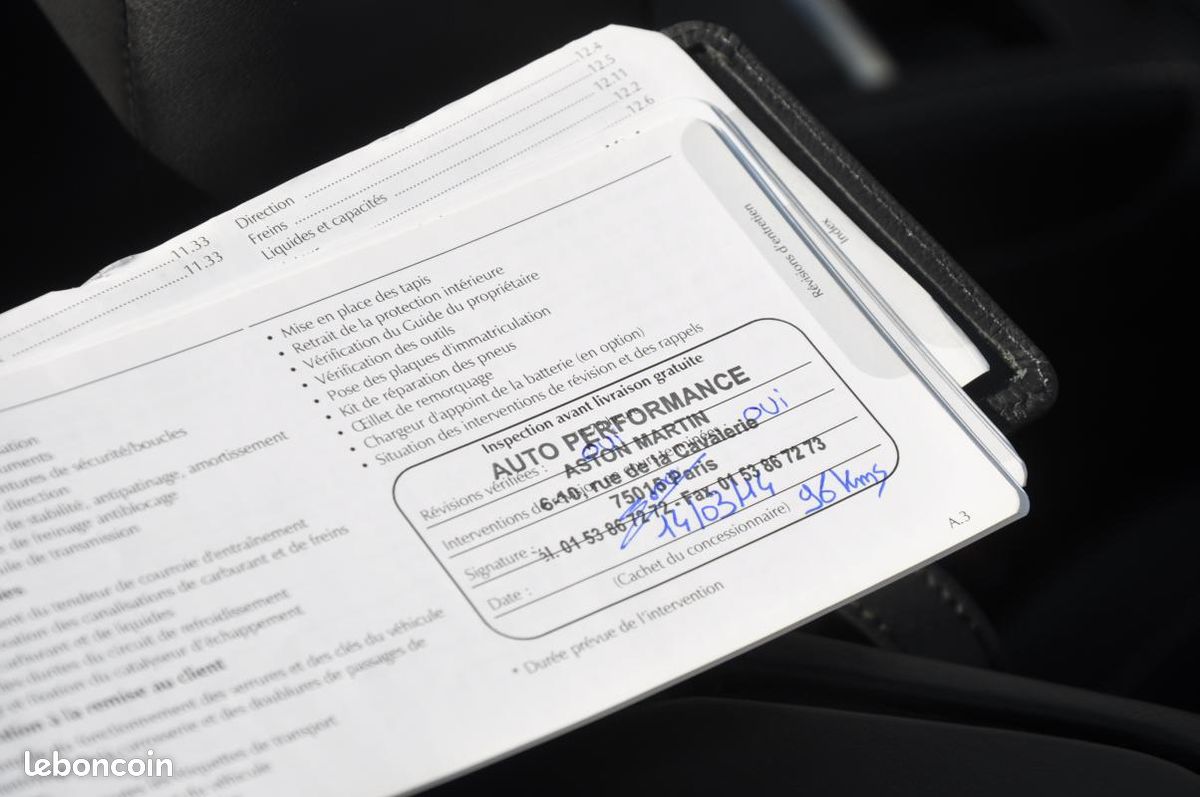 12.4
12.5
12.11
12.2
12.6
11.33
11.33
Direction
Freins
Liquides et capacités
Index
Révisions d'entretien
• Mise en place des tapis
• Retrait de la protection intérieure
• Vérification du Guide du propriétaire
• Vérification des outils
• Pose des plaques d'immatriculation
• Kit de réparation des pneus
• Œillet de remorquage
• Chargeur d'appoint de la batterie (en option)
• Situation des interventions de révision et des rappels
Inspection avant livraison gratuite
AUTO PERFORMANCE
ASTON MARTIN
6-10, rue de la Cavalerie
75015 Paris
01 53 86 72 72 - Fax 01 53 86 72 73
Révisions vérifiées : OUI
Interventions OUI
Signature :
Date : 14/03/14 96 Kms
(Cachet du concessionnaire)
* Durée prévue de l'intervention
A.3
de sécurité/boucles
direction
de stabilité, antipatinage, amortissement
de freinage antiblocage
de transmission
du tendeur de courroie d'entraînement
des canalisations de carburant et de freins
carburant et de liquides
du circuit de refroidissement
et fixation du catalyseur d'échappement
à la remise au client
fonctionnement des serrures et des clés du véhicule
carrosserie et des doublures de passages de
étiquettes de transport
véhicule
leboncoin